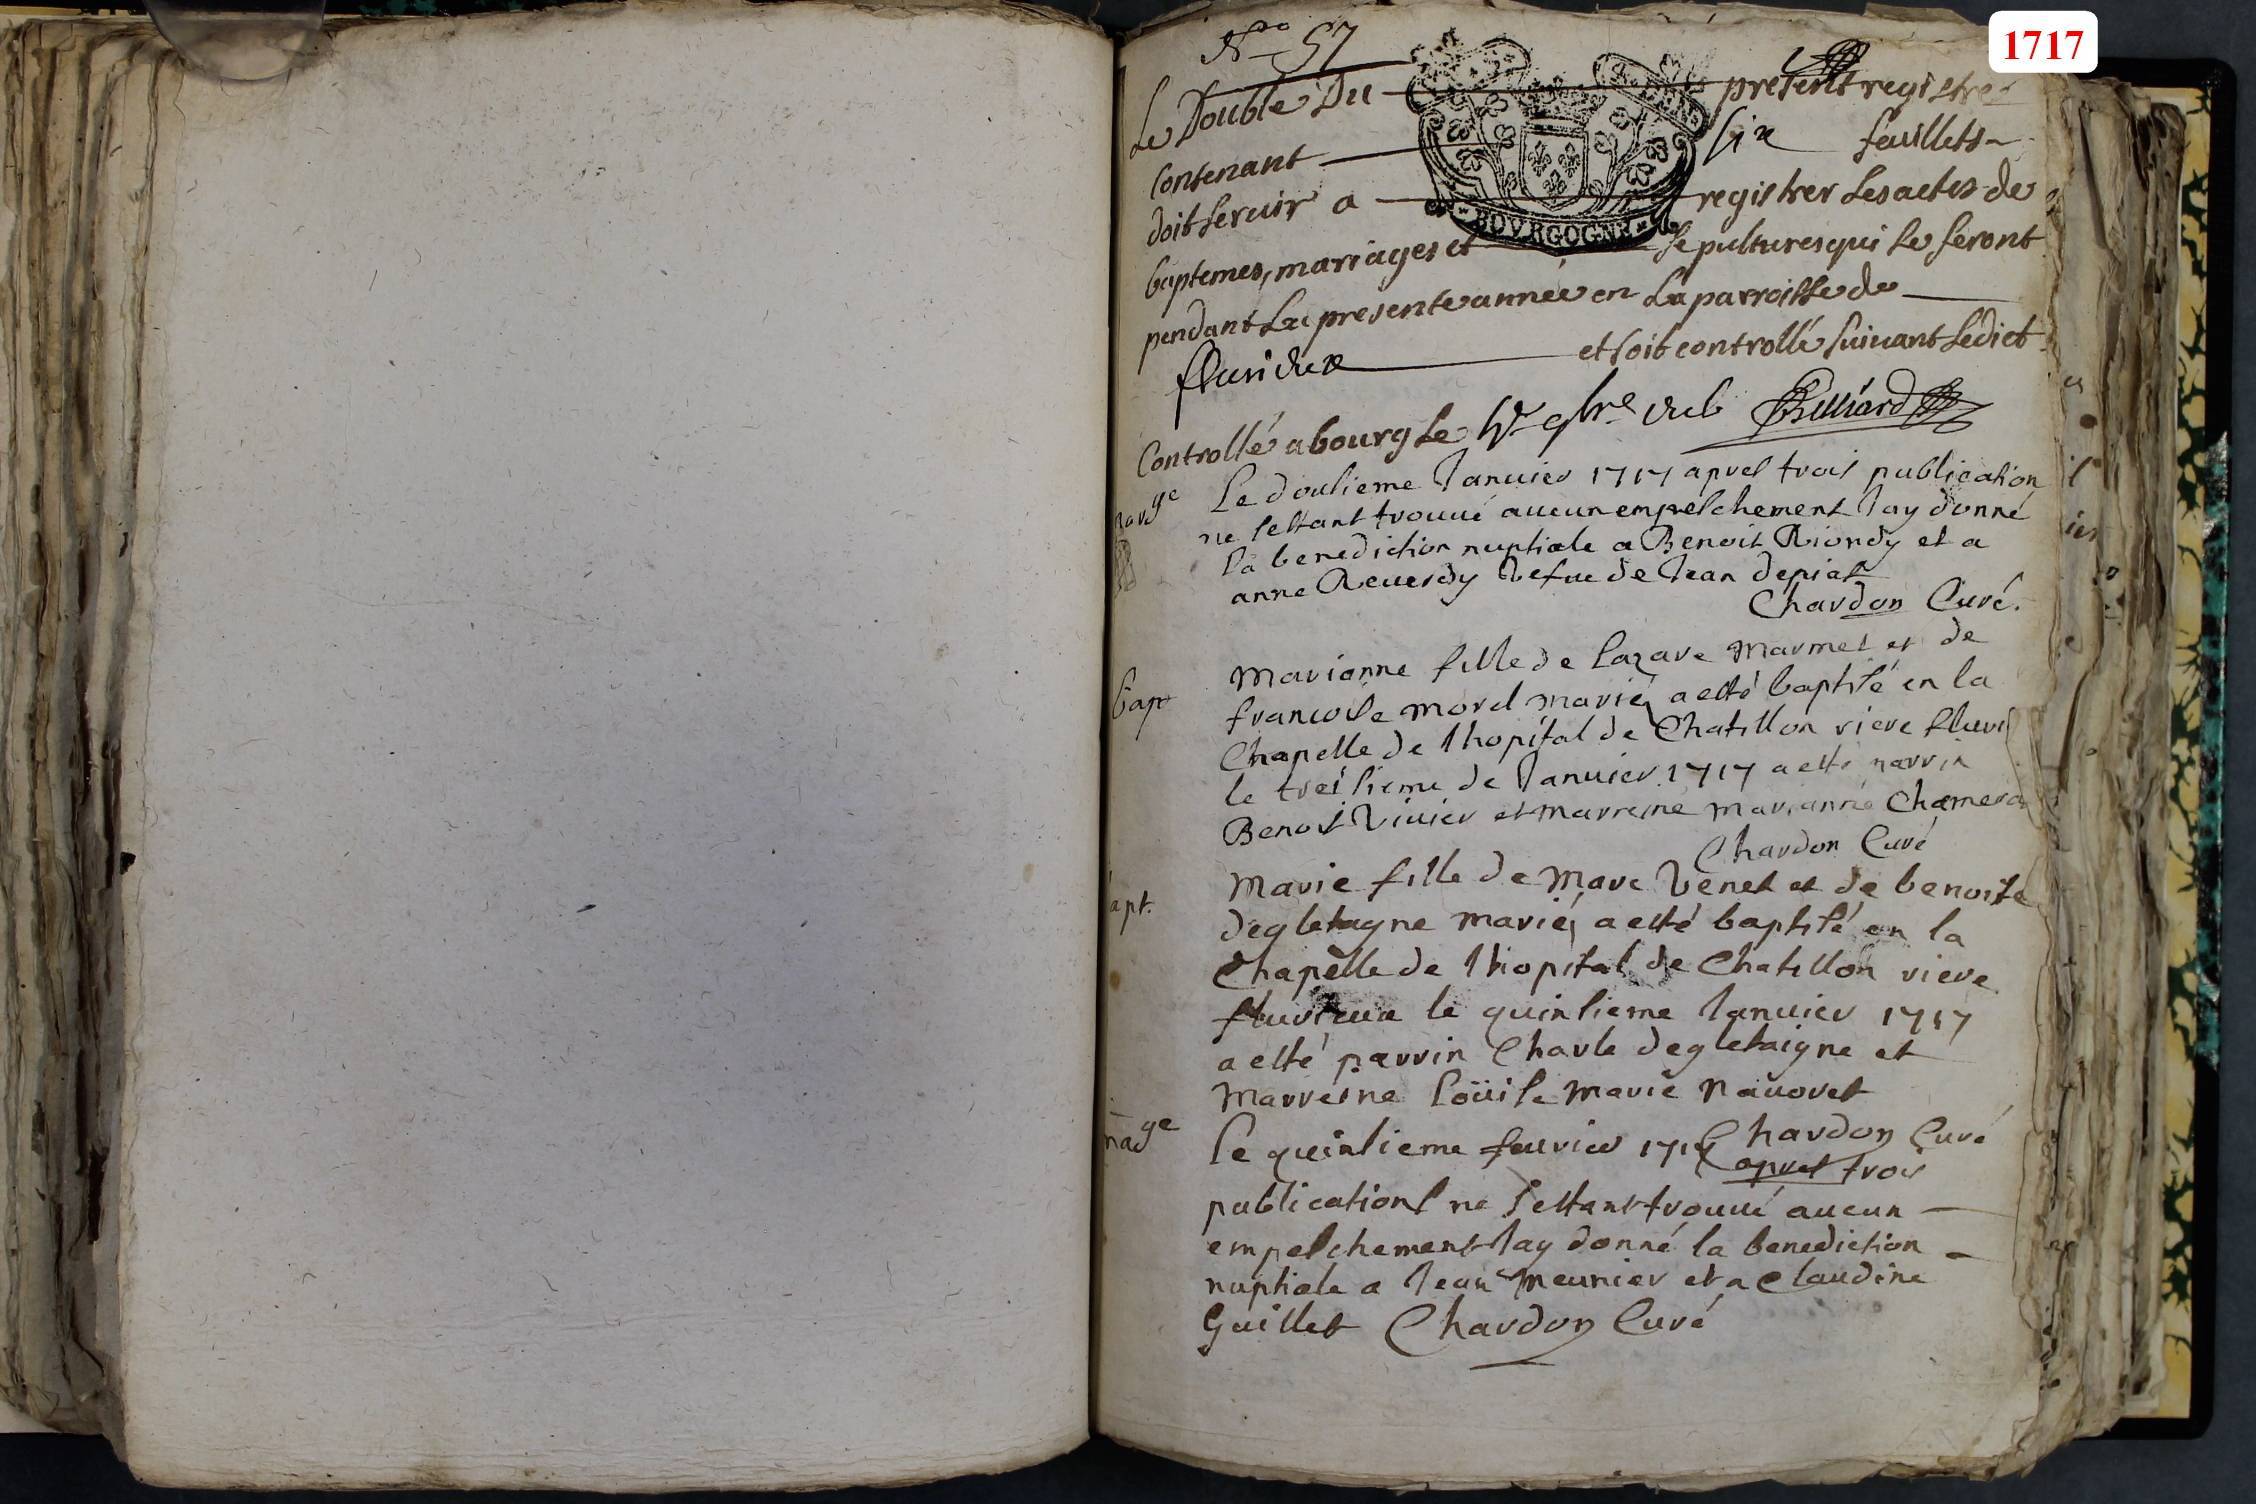 1717
Nro 57
Le Double Du present registre
Contenant six feuillets
doit servir a registrer Les actes de
BOVRGOGNE
baptemes, mariages et sepultures qui se feront
pendant La presente année en La parroisse de
flurieux et soit controllé suivant Ledict
Controllé a bourg Le Xbre Billiard
mar ge
Le dousieme Januier 1717 apres trois publication
ne sestant trouué aucun empeschement Jay donné
la benediction nuptiale a Benoit Riondy et a
anne Reuerdy Vefue de Jean depiat
Chardon Curé.
bap
Marianne fille de Lazare Marmet et de
francoise morel mariés a esté baptisé en la
Chapelle de l hopital de Chatillon riere fluri
le treisieme de Januier 1717 a esté parrin
Benoit Viuier et marreine marianne Chamera
Chardon Curé
apt.
Marie fille de Marc Venet et de benoite
degletagne mariés a esté baptisé en la
Chapelle de l hopital de Chatillon riere
flurieux le quinsieme Januier 1717
a esté parrin Charle degletaigne et
Marreine Loüise Marie Nauoret
Chardon Curé
mage
Le quinsieme feurier 1717 apres trois
publications ne sestant trouué aucun
empeschement Jay donné la benediction
nuptiale a Jean Meunier et a Claudine
Guillet Chardon Curé